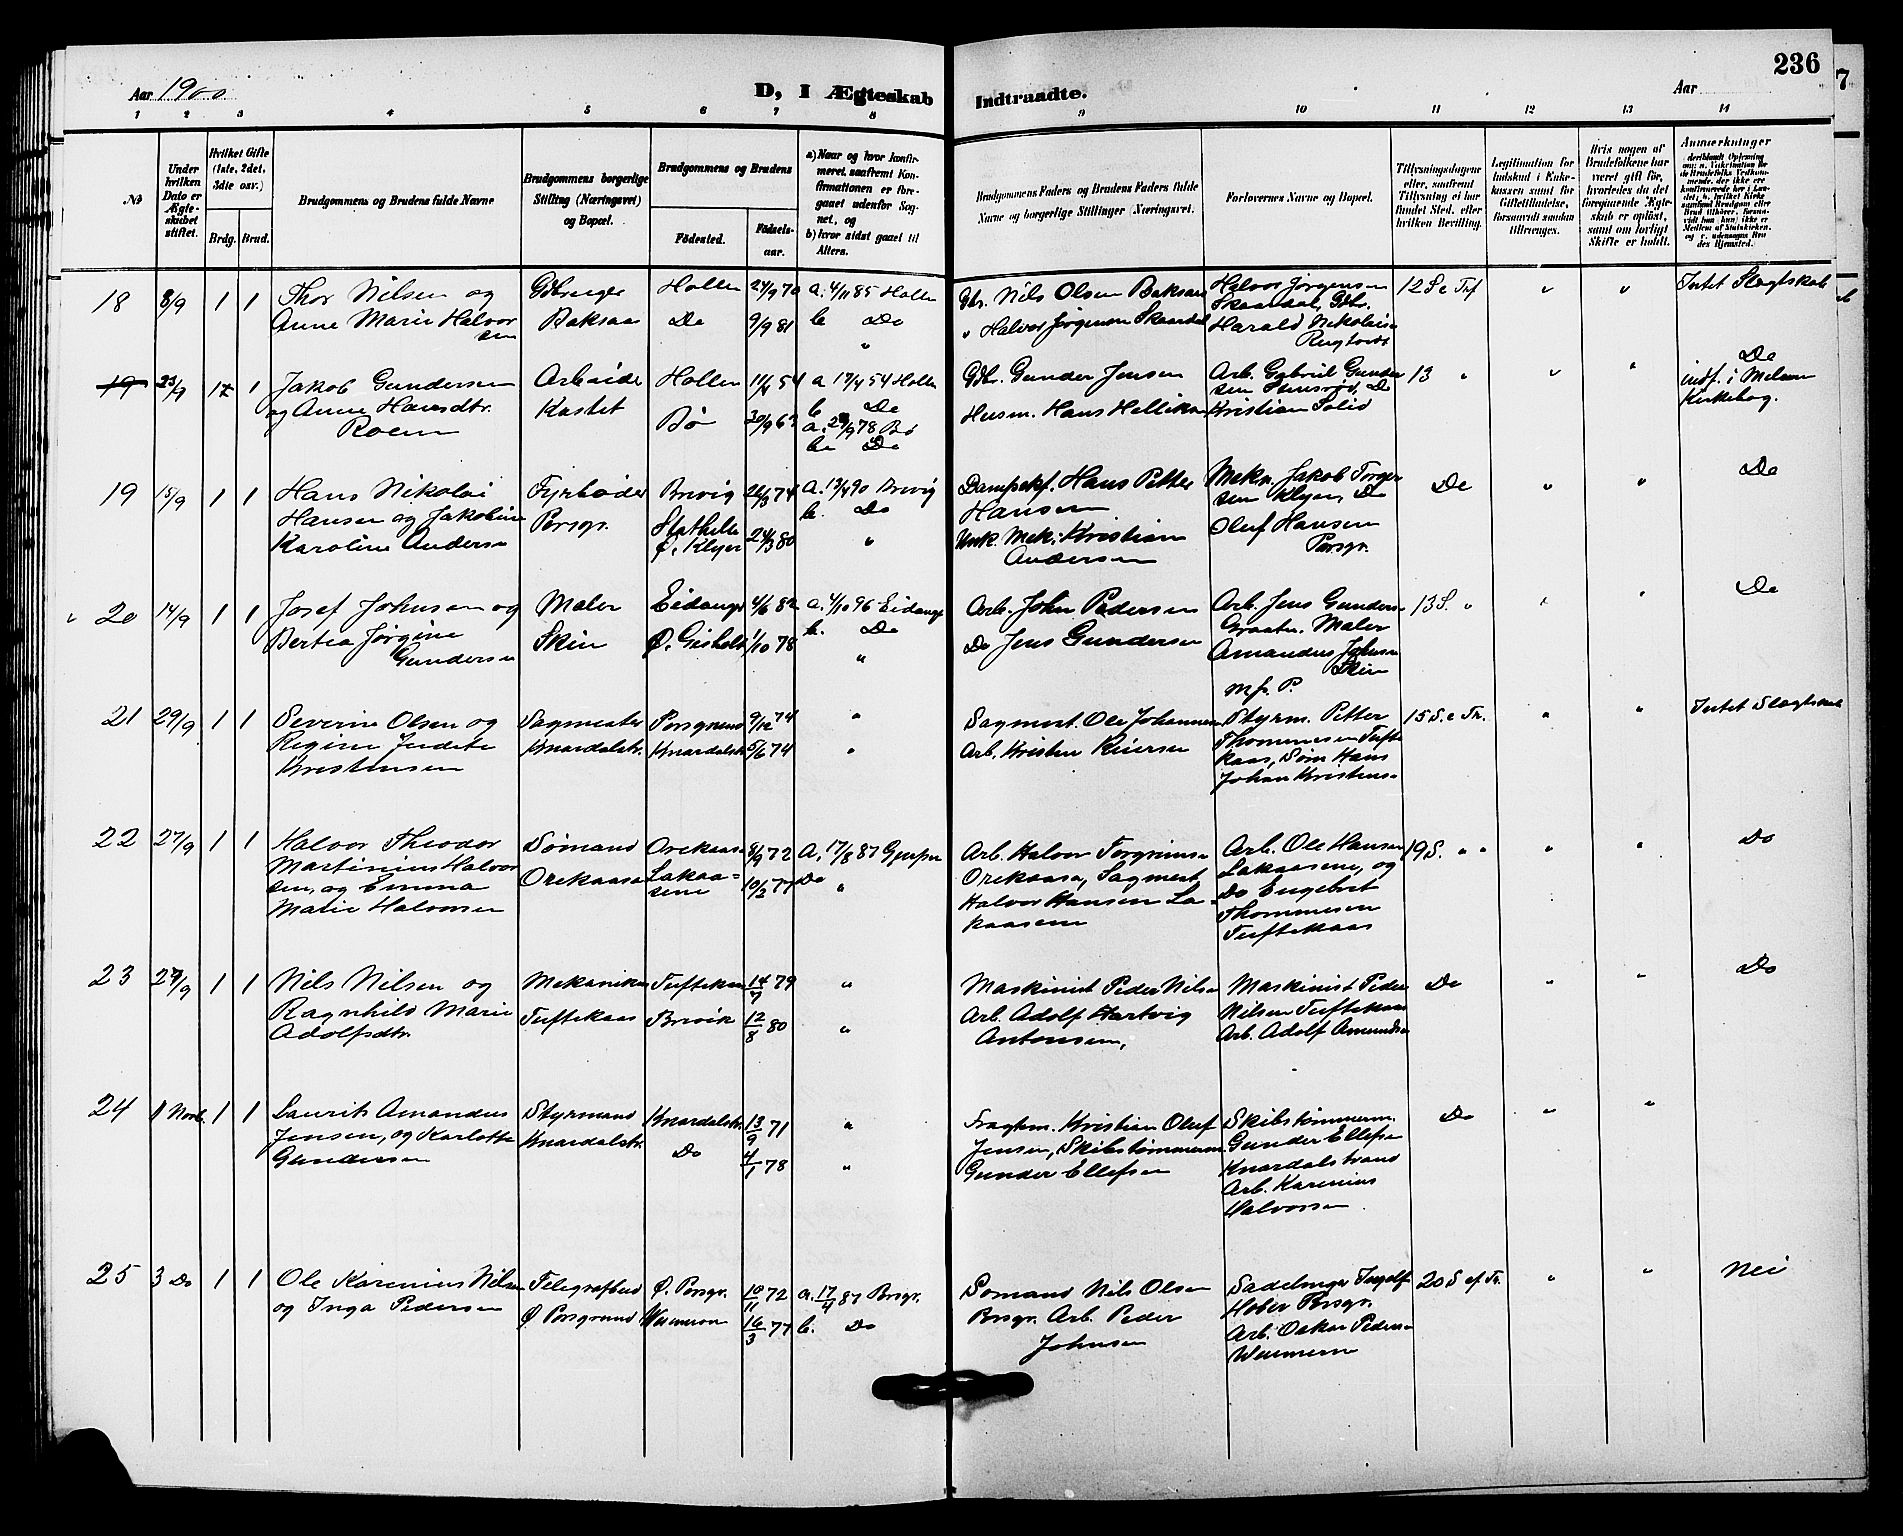 236
Aar 1900
D, I Ægteskab Indtraadte.
Aar
1 2 3 4 5 6 7 8 9 10 11 12 13 14
№
Under hvilken Dato er Ægteskabet stiftet.
Hvilket Gifte (1ste, 2det, 3die osv.)
Brdg. Brud.
Brudgommens og Brudens fulde Navne
Brudgommens borgerlige Stilling (Næringsvei) og Bopæl.
Brudgommens og Brudens
Födested.
Födselsaar.
a) Naar og hvor konfirmeret, saafremt Konfirmationen er foregaaet udenfor Sognet, og
b) hvor sidst gaaet til Alters.
Brudgommens Faders og Brudens Faders fulde Navne og borgerlige Stillinger (Næringsvei.
Forlovernes Navne og Bopæl.
Tillysningsdagene eller, saafremt Tillysning ei har fundet Sted, efter hvilken Bevilling.
Legitimation for Indskud i Enkekassen samt for Giftetilladelse, forsaavidt saadan tiltrænges.
Hvis nogen af Brudefolkene har været gift før, hvorledes da det foregaaende Ægteskab er opløst, samt om lovligt Skifte er holdt.
Anmærkninger
18 8/9 1 1 Thor Nilsen og
Anne Marie Halvorsen
Gdbruger
Baksaa
Hollen 24/9 70 a. 4/11 85 Hollen
Do 9/9 81 b Do
"
Gbr. Nils Olsen Baksaas
" Halvor Jørgensen Skaardal
Halvor Jørgensen
Skaardal, Gbr.
Harald Nikolaisen
12 S e Trf " " Intet Slegtskab
19 23/9 1 1 Jakob Gundersen
og Anne Hansdtr.
Roen
Arbeider
Kastet
Hollen 11/4 54 a 17/4 54 Hollen
b Do
Bø 30/9 62 a. 29/9 78 Bø
b. Do
Gbr. Gunder Jensen
Husm. Hans Hellikson
Arb. Gabriel Gundersen
Kristian Solid
13 " " " Do
indf. i Melum
Kirkebog.
19 15/9 1 1 Hans Nikolai
Hansen og Jakobine
Karoline Andersen
Fyrbøder
Porsgr.
Brevig 26/3 74 a. 13/4 90 Brevig
b. Do
Stathelle
Ø. Klyer 24/3 80 "
Dampskf. Hans Petter
Hansen
Unk. Mek. Kristian
Andersen
Mekn. Jakob Torgersen
Klyer, Do
Oluf Hansen
Porsgr.
Do " " Do
20 14/9 1 1 Josef Johnsen og
Bertea Jørgine
Gundersen
Maler
Skien
Eidanger 4/6 82 a. 4/10 96 Eidanger
b. Do
Ø. Gisholt 1/10 78 "
Arb. John Pedersen
Do Jens Gundersen
Arb. Jens Gunders.
Graaten. Maler
Amandus Johnsen
Skien
13 S. " " " Do
21 29/9 1 1 Severin Olsen og
Regine Judete
Kristensen
Sagmester
Knardalstr.
Porsgrund 9/12 74 "
Knardalstr. 5/6 74 "
Sagmest. Ole Johannesen
Arb. Kristen Reiersen
Mfr. P.
Styrm. Petter
Thommesen Tuftekaas,
Søm Hans
Johan Kristens.
15 S. e Tr. " " Intet Slegtskab
22 27/9 1 1 Halvor Theodor
Martinius Halvorsen,
og Emma
Marie Halvorsen
Sømand
Orekaasa
Orekaasa 8/9 72 a. 17/8 87 Gjerpen
Lakaasene 10/2 77 Do "
Arb. Halvor Torgrimsen
Orekaasa, Sagmest.
Halvor Hansen Lakaasene
Arb. Ole Hansen
Lakaasene, og
Do Engebret
Thommesen
Tuftekaas
19 S. " " " " Do
23 27/9 1 1 Nils Nilsen og
Ragnhild Marie
Adolfsdtr.
Mekaniker
Tuftekaas
Tuftekaas 14/7 79 "
Brevik 12/8 80 "
Maskinist Peder Nilsen
Arb. Adolf Hartvig
Antonsen,
Maskinist Peder
Nilsen Tuftekaas
Arb. Adolf Amundsen
Do " " Do
24 1 Novb. 1 1 Laurits Amandus
Jensen, og Karlotte
Gundersen
Styrmand
Knardalstr.
Knardalstr. 13/9 71 "
Do 4/1 78 "
Fragtm. Kristian Oluf
Jensen, Skibstømmerm.
Gunder Ellefsen
Skibstømmerm.
Gunder Ellefsen
Knardalstrand
Arb. Karenius
Halvorsen
Do " "
25 3 Do 1 1 Ole Karenius Nilsen
og Inga Pedersen
Telegrafbud
Ø Porsgrund
Ø. Porsgr. 10/11 72 a. 17/4 87 Porsgr.
16/3 77 b. Do
Sømand Nils Olsen
Porsgr. Arb. Peder
Johnsen
Sadelmager Ingolf
Porsgr.
Arb. Oskar Pedersen
20 S ef Tr. " " Nei